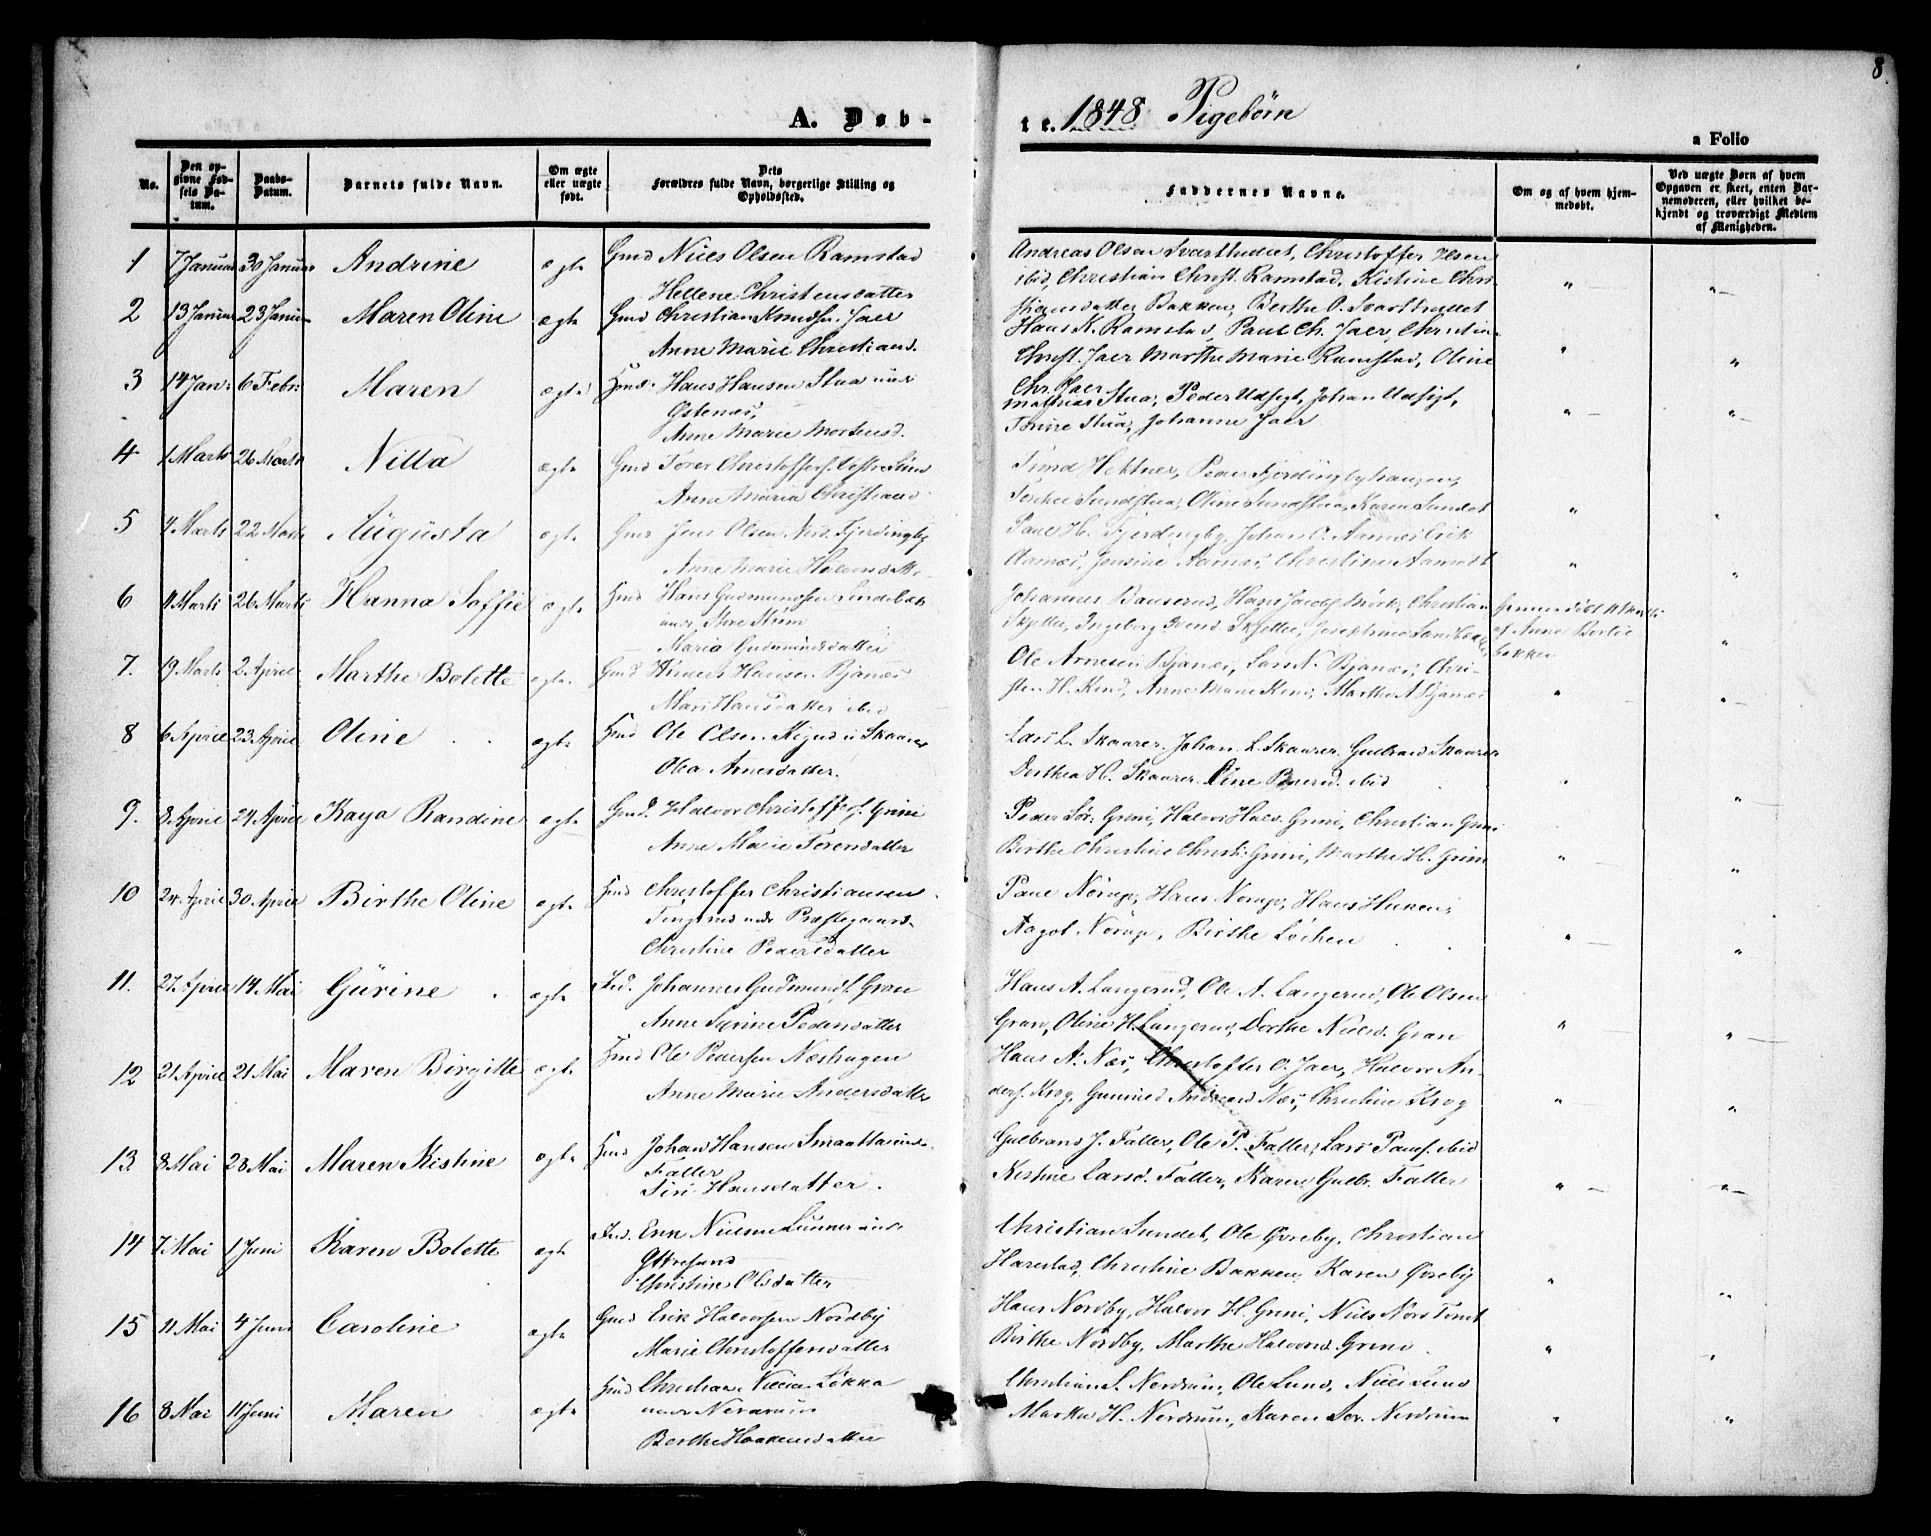 8
A. Døb-
te. 1848 Pigebørn
a Folio
No.
Den op-
givne Fød-
sels Da-
tum.
Daabs-
Datum.
Barnets fulde Navn.
Om ægte
eller uægte
født.
Dets
Forældres fulde Navn, borgerlige Stilling og
Opholdssted.
Faddernes Navne.
Om og af hvem hjem-
medøbt.
Ved uægte Børn af hvem
Opgaven er skeet, enten Bar-
nemoderen, eller hvilket be-
kjendt og troværdigt Medlem
af Menigheden.
1 7 Januar 30 Januar Andrine ægte Gmd Niels Olsen Ramstad
Hellene Christensdatter
Andreas Olsen Svarthudet, Christoffer Olsen
ibid, Christian Christ. Ramstad, Kistine Chri-
stiansdatter Bakken, Berthe O. Svarthudet
2 13 Januar 23 Januar Maren Oline ægte Gmd Christian Knudsn. Jaer
Anne Marie Christiansd.
Hans K. Ramstad, Paul Ch. Jaer, Christin
Christ. Jaer Marthe Marie Ramstad, Oline
Chr. Jaer
3 14 Jan: 6 Febr: Maren ægte Hmd. Hans Hansen Stua und
Østenæs,
Anne Marie Mortensd.
Mathias Stua, Peder Udsigt, Johan Udsigt,
Stua, Johanne Jaer
4 1 Marts 26 Marts Nilla ægte Gmd Torer Christoffers. Vestre
Anne Maria Christiansd
Hektner, Peder Fjerdingbyhaugen,
Sundstua, Oline Sundstua, Karen Sundet
5 4 Marts 22 Marts Augusta ægte Gmd Jens Olsen Fjerdingby
Anne Marie Halvorsdatt.
Paul H. Fjerdingby, Johan O. Aamot, Erik
Aarnæs, Jensine Aarnæs, Christine Aamodt
6 11 Marts 26 Marts Hanna Soffie ægte Hmd Hans Gudmundsen Lindebæk
und. Store Strøm
Maria Gudmundsdatter
Johannes Bauserud, Hans Jacobs Mørk, Christian
Skjelle, Ingeborg Svend. Skjelle, Josephine
af Anne Bertie
Bakken
7. 19 Marts 2 April Marthe Bolette ægte. Gmd Hansen Bjanæs
Mari Hansdatter ibid
Ole Arnesen Bjanæs, Lars N. Bjanæs, Chri-
sten H. Kind, Anne Marie Kind, Marthe A Bjanæs
8 6 April 23 April Oline ægte Hmd Ole Olsen u Skaarer
Olea Arnesdatter.
Lars L. Skaarer, Johan L. Skaarer, Gulbrand Skaarer
Dorthea H. Skaarer. ibid
9. 8 April 24 April Kaja Randine ægte Gmd. Halvor Christoffers. Grini
Anne Marie Torensdatter
Peder Sør: Grini, Halvor Halv. Grini, Christian Grini
Birthe Christine Christ. Grini, Marthe H. Grini
10 24 April 30 April Birthe Oline ægte Hmd Christoffer Christiansen
Tingsrud unde Præstegaard.
Christine Pedersdatter
Paul Nørup, Hans Norup, Hans
Aagot Nørup, Birthe Løchen
11. 27. April 14 Mai Gürine ægte Ind. Johannes Gudmunds. Gran
Anne Syrine Pedersdatter
Hans A. Langerud, Ole A. Langerud, Ole Olsen
Gran, Oline H. Langerud, Dorthe Nielsd. Gran
12 21 April 21 Mai Maren Birgitte ægte Hmd Ole Pedersen Næshagen
Anne Marie Andersdatter
Hans A. Næs, Christoffer O. Jaer, Halvor An-
ders. Krog, Næs, Christine Krog
13 8 Mai 28 Mai Maren Kistine ægte Hmd Johan Hansen Smaattarund
Faller
Siri Hansdatter.
Gulbrand J. Faller, Ole P. Faller, Lars Pauls. ibid
Kistine Larsd. Faller, Karen Gulbr. Faller
14 7 Mai 1 Juni Karen Bolette ægte Ind. Erik Nielsen Lunner und
Christine Olsdatter
Christian Sundet, Ole Øvreby, Christian
Harestad, Christine Bakken, Karen Øvreby
15 11 Mai 4 Juni Caroline ægte Gmd Erik Halvorsen Nordby
Marie Christoffersdatter
Hans Nordby, Halvor H. Grini, Niels Nord Tomt
Birthe Nordby, Marthe Halvorsd. Grini
16 8 Mai 11 Juni Maren ægte Hmd Christian Løkka
under Nerdrum
Berthe Haakensdatter
Christian S. Nerdrum, Ole Lund, Niels Lund
Marthe H. Nerdrum, Karen Sør. Nerdrum